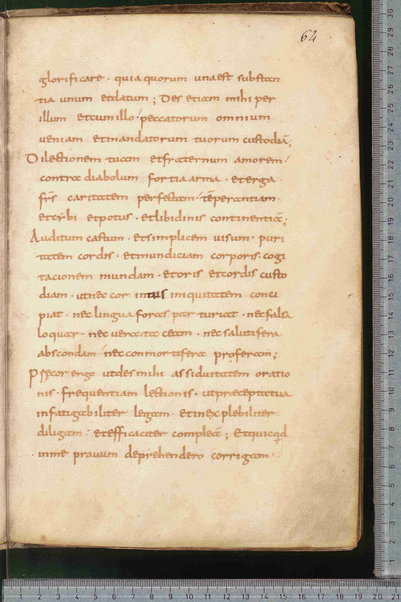 64
glorificare · quia quorum una est substan
tia unum et datum ; Des etiam mihi per
illum et cum illo · peccatorum omnium
veniam et mandatorum tuorum custodiā ;
Dilectionem tuam et fraternum amorem ·
contra diabolum · fortia arma · et erga
frīs caritatem perfectam · tēperantiam
et cybi et potus · et libidinis continentiā ;
Auditum castum · et simplicem visum · puri
tatem cordis · et mundiciam corporis · cogi
tacionem mundam · et oris et cordis custo
diam · ut nec cor intus iniquitatem conci
piat · nec lingua foras par turiat · nec falsa
loquar · nec vera taceam · nec salutifera
abscondam · nec con mortifera proferam ;
Precor ergo ut des mihi assiduitatem oratio
nis · frequentiam lectionis · ut precepta tua
infatigabiliter legam · et inexplebiliter
diligam · et efficaciter compleā ; Et quicqd
in me pravum deprehendero corrigam ·